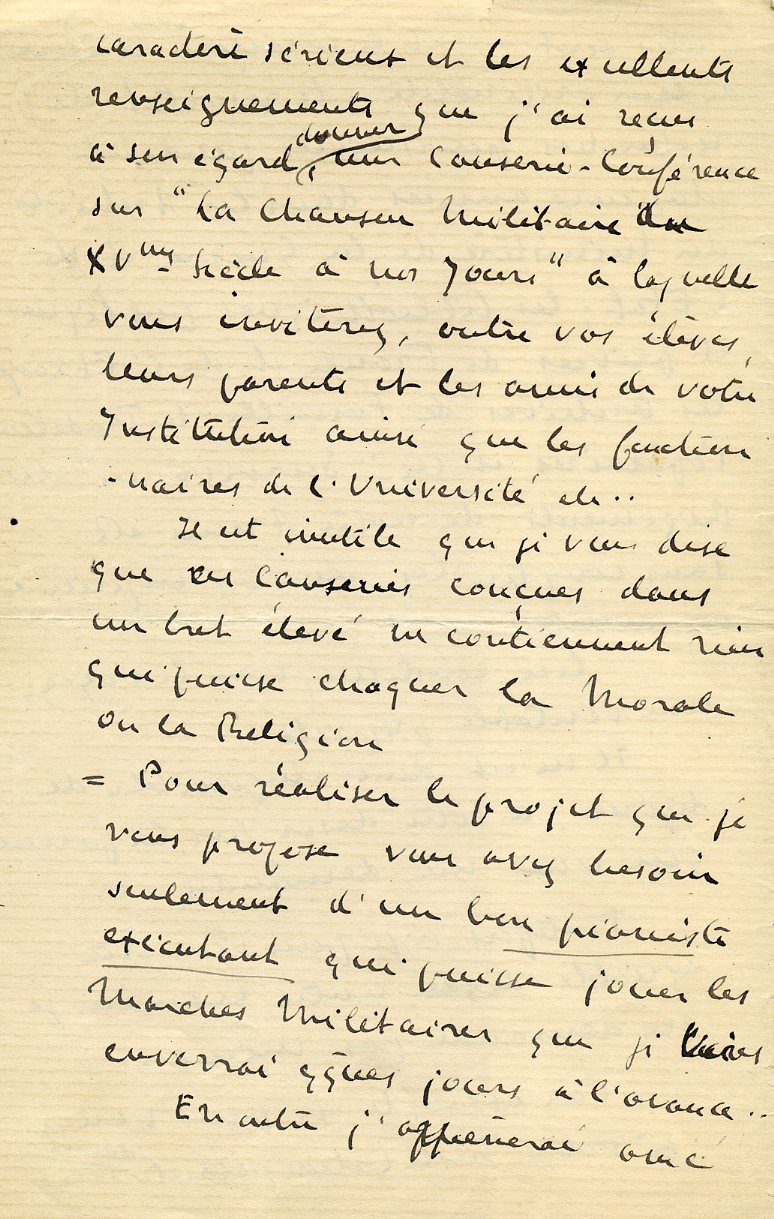 caractère sérieux et les excellents
renseignements que j'ai reçus
à son égard, donner une Causerie-Conférence
sur "La Chanson Militaire du
XVme Siècle à nos Jours" à laquelle
vous inviterez, outre vos élèves,
leurs parents et les amis de votre
Institution ainsi que les fonction
-naires de l'Université etc..
Il est inutile que je vous dise
que ces Causeries conçues dans
un but élevé ne contiennent rien
qui puisse choquer la Morale
ou la Religion
= Pour réaliser le projet que je
vous propose vous avez besoin
seulement d'un bon pianiste
exécutant qui puisse jouer les
Marches Militaires que je vous
enverrai qques jours à l'avance..
En outre j'amènerai avec